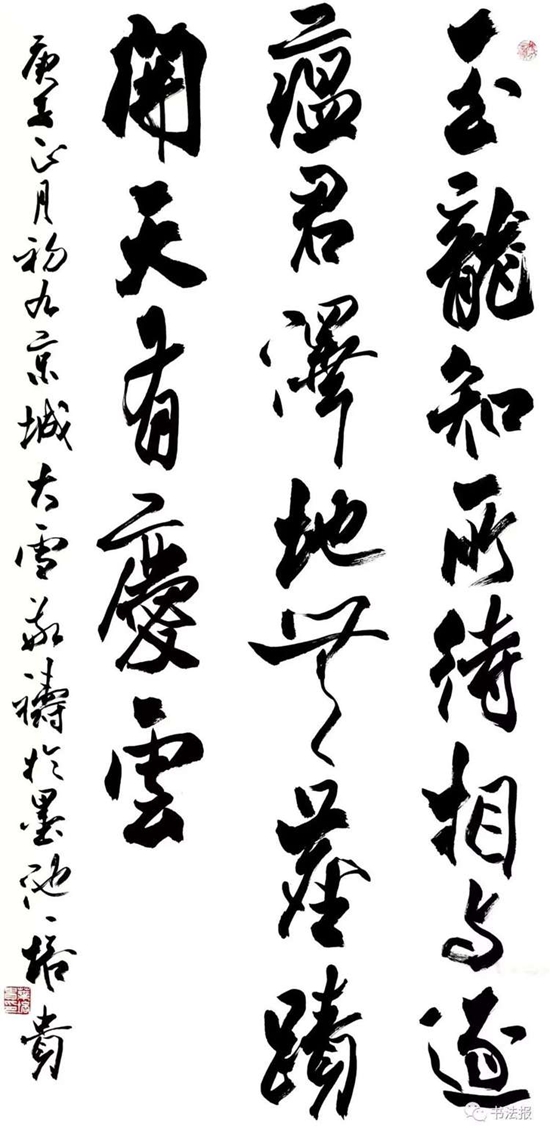 玉龍知所待相与逐
瘟君澤地無蹟
開天有慶雲
庚子正月初九京城大雪敬禱於墨池培貴
书法报